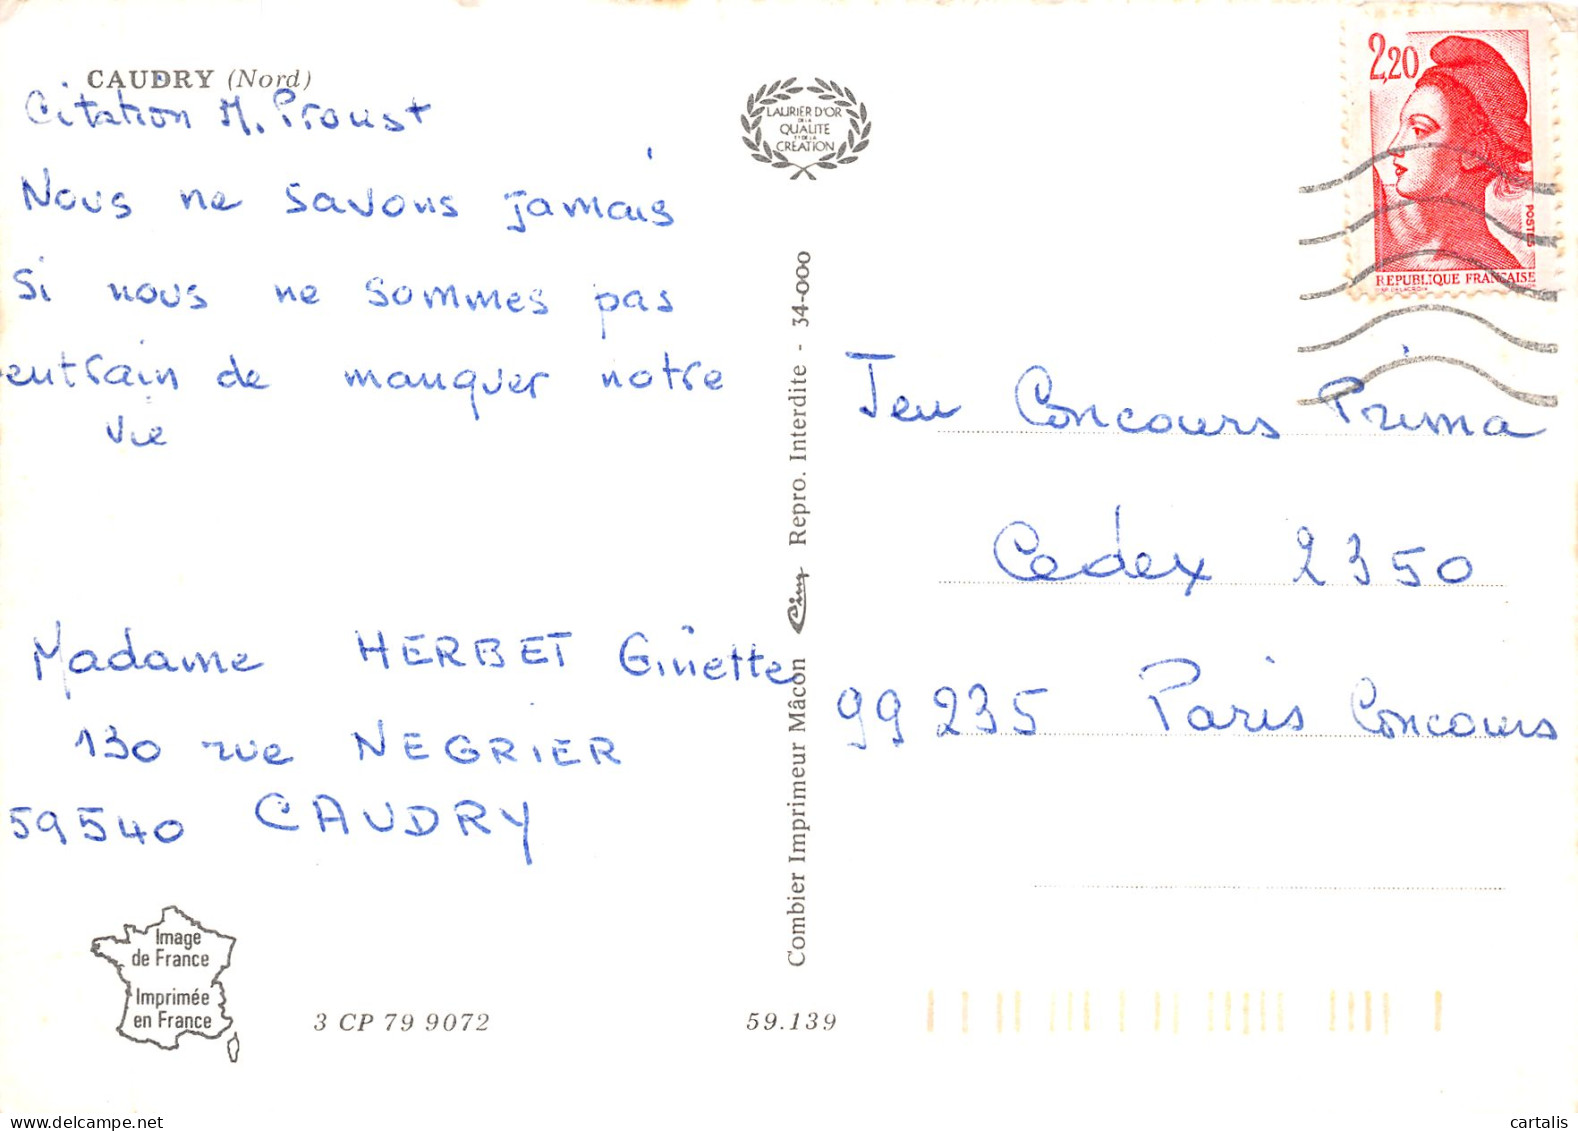 CAUDRY (Nord)
Citation M. Proust
Nous ne savons jamais
si nous ne sommes pas
entrain de manquer notre
vie
Madame HERBET Ginette
130 rue NEGRIER
59540 CAUDRY
Image
de France
Imprimée
en France
3 CP 79 9072
59.139
LAURIER D'OR
DE LA
QUALITE
ET DE LA
CRÉATION
Combier Imprimeur Mâcon Cim Repro. Interdite - 34-000
2,20
POSTES
REPUBLIQUE FRANÇAISE
Jeu Concours Prima
Cedex 2350
99235 Paris Concours
delcampe.net
cartalis